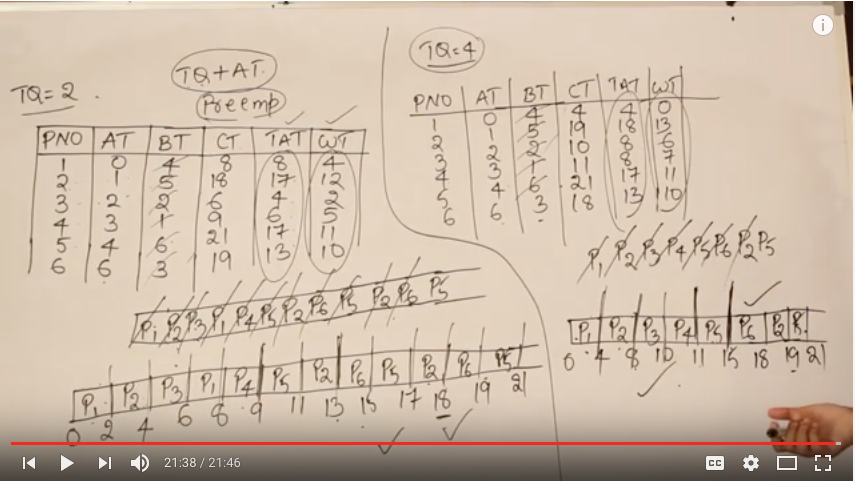 TQ=2
TQ+AT
Preemp
PNO AT BT CT TAT WT
1 0 4 8 8 4
2 1 5 18 17 12
3 2 2 6 4 2
4 3 1 9 6 5
5 4 6 21 17 11
6 6 3 19 13 10
P1 P2 P3 P1 P4 P5 P2 P6 P5 P2 P6 P5
P1 P2 P3 P1 P4 P5 P2 P6 P5 P2 P6 P5
0 2 4 6 8 9 11 13 15 17 18 19 21
TQ=4
PNO AT BT CT TAT WT
1 0 4 4 4 0
2 1 5 19 18 13
3 2 2 10 8 6
4 3 1 11 8 7
5 4 6 21 17 11
6 6 3 18 13 110
P1 P2 P3 P4 P5 P6 P2 P5
P1 P2 P3 P4 P5 P6 P2 P5
0 4 8 10 11 15 18 19 21
21:38 / 21:46
CC